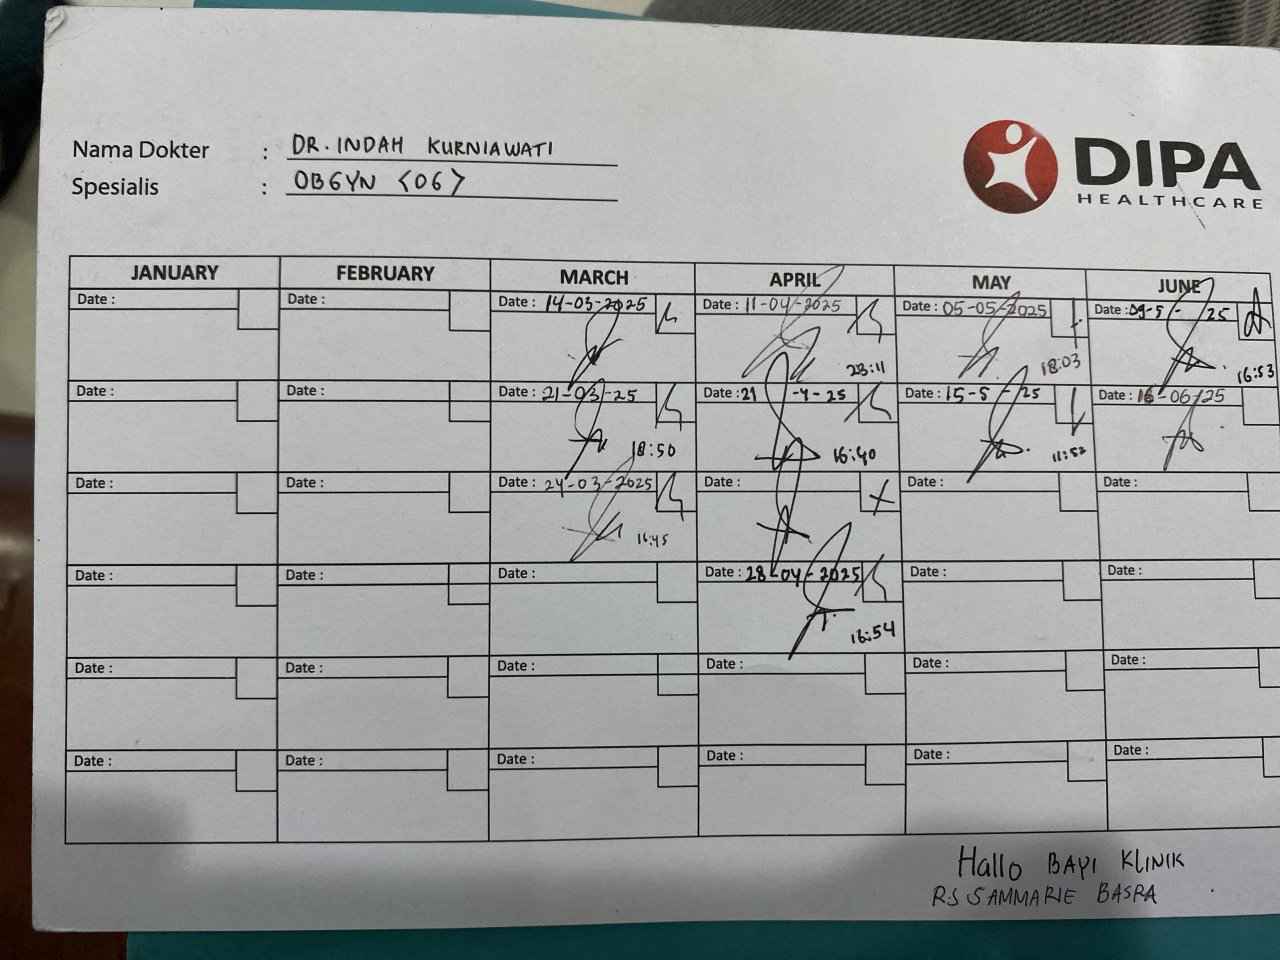 Nama Dokter : DR. INDAH KURNIAWATI
Spesialis : OBGYN <OG>
DIPA
HEALTHCARE
JANUARY FEBRUARY MARCH APRIL MAY JUNE
Date : Date : Date : 14-03-2025 Date : 11-04-2025 Date : 05-05-2025 Date : 09-5- 25
23:11 18:03 16:53
Date : Date : Date : 21-03-25 Date : 21 -4-25 Date : 15-5-25 Date : 16-06/25
18:50 16:40 11:52
Date : Date : Date : 24-03-2025 Date : Date : Date :
16:45
Date : Date : Date : Date : 28-04-2025 Date : Date :
16:54
Date : Date : Date : Date : Date : Date :
Date : Date : Date : Date : Date : Date :
Hallo BAYI KLINIK
RS SAMMARIE BASRA